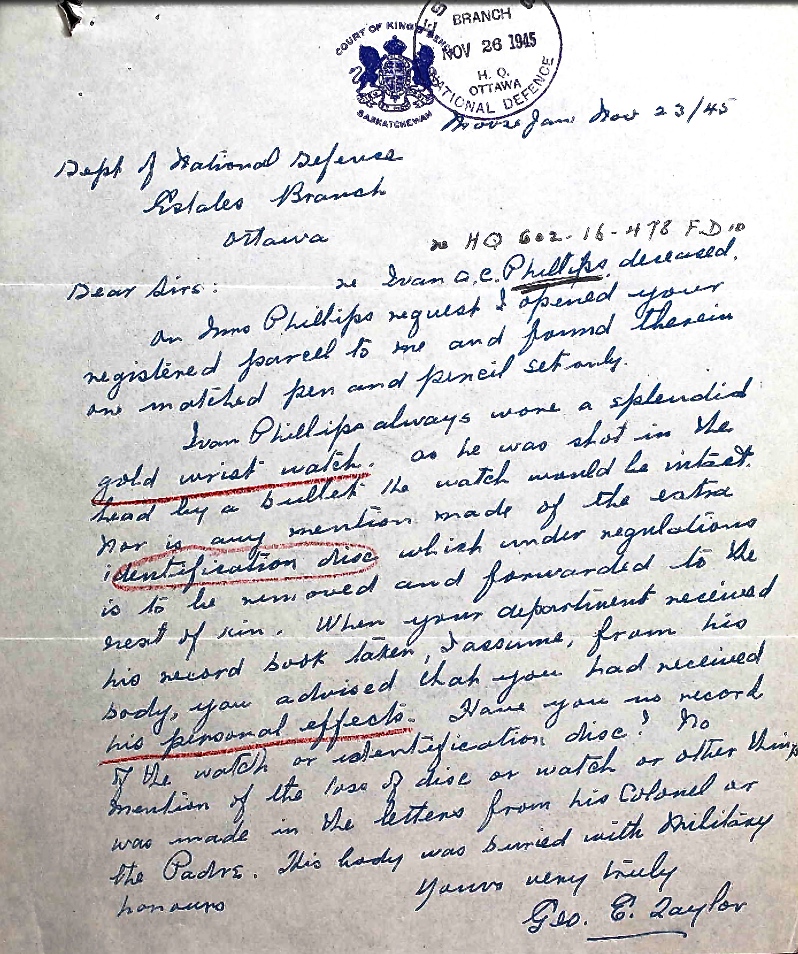 COURT OF KING'S BENCH
SASKATCHEWAN
BRANCH
NOV 26 1945
H. Q.
OTTAWA
NATIONAL DEFENCE
Moose Jaw Nov 23/45
Dept of National Defence
Estates Branch
Ottawa
re HQ 602-16-478 F.D 10
Dear Sirs: re Ivan a.c. Phillips, deceased.
On Mrs Phillips request I opened your
registered parcel to me and found therein
one matched pen and pencil set only.
Ivan Phillips always wore a splendid
gold wrist watch. as he was shot in the
head by a bullet the watch would be intact.
Nor is any mention made of the extra
identification disc which under regulations
is to be removed and forwarded to the
next of kin. When your department received
his record book taken, I assume, from his
body, you advised that you had received
his personal effects. Have you no record
of the watch or identification disc? No
mention of the loss of disc or watch or other things
was made in the letters from his Colonel or
the Padre. His body was buried with Military
honours
Yours very truly
Geo. E. Taylor